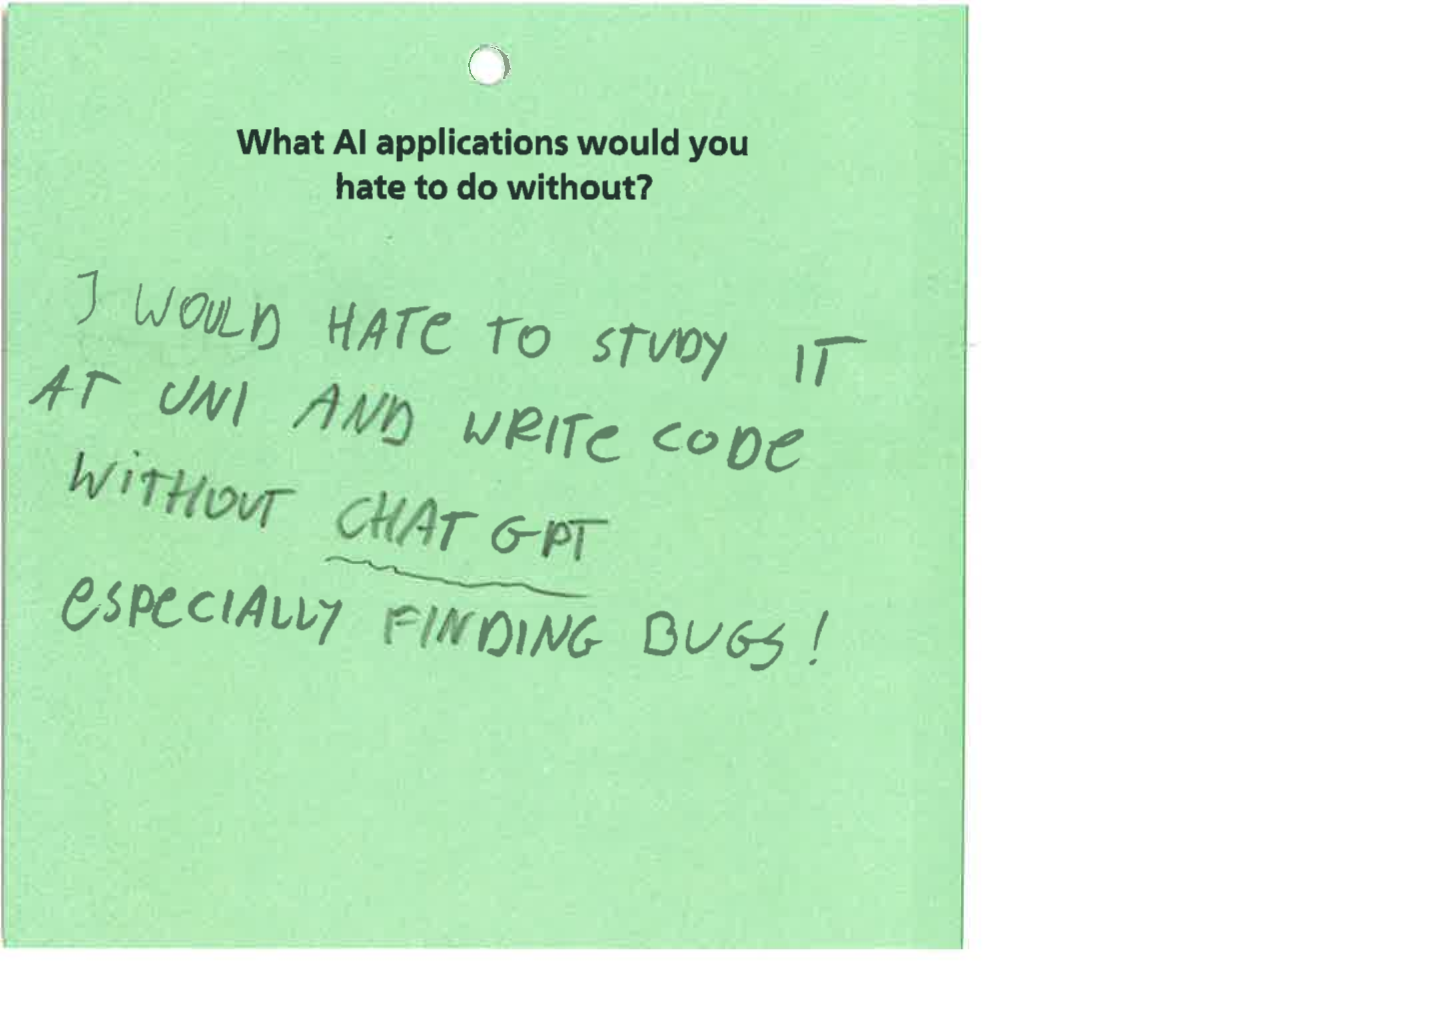 What AI applications would you
hate to do without?
I WOULD HATE TO STUDY IT
AT UNI AND WRITE CODE
WITHOUT CHAT GPT
ESPECIALLY FINDING BUGS!